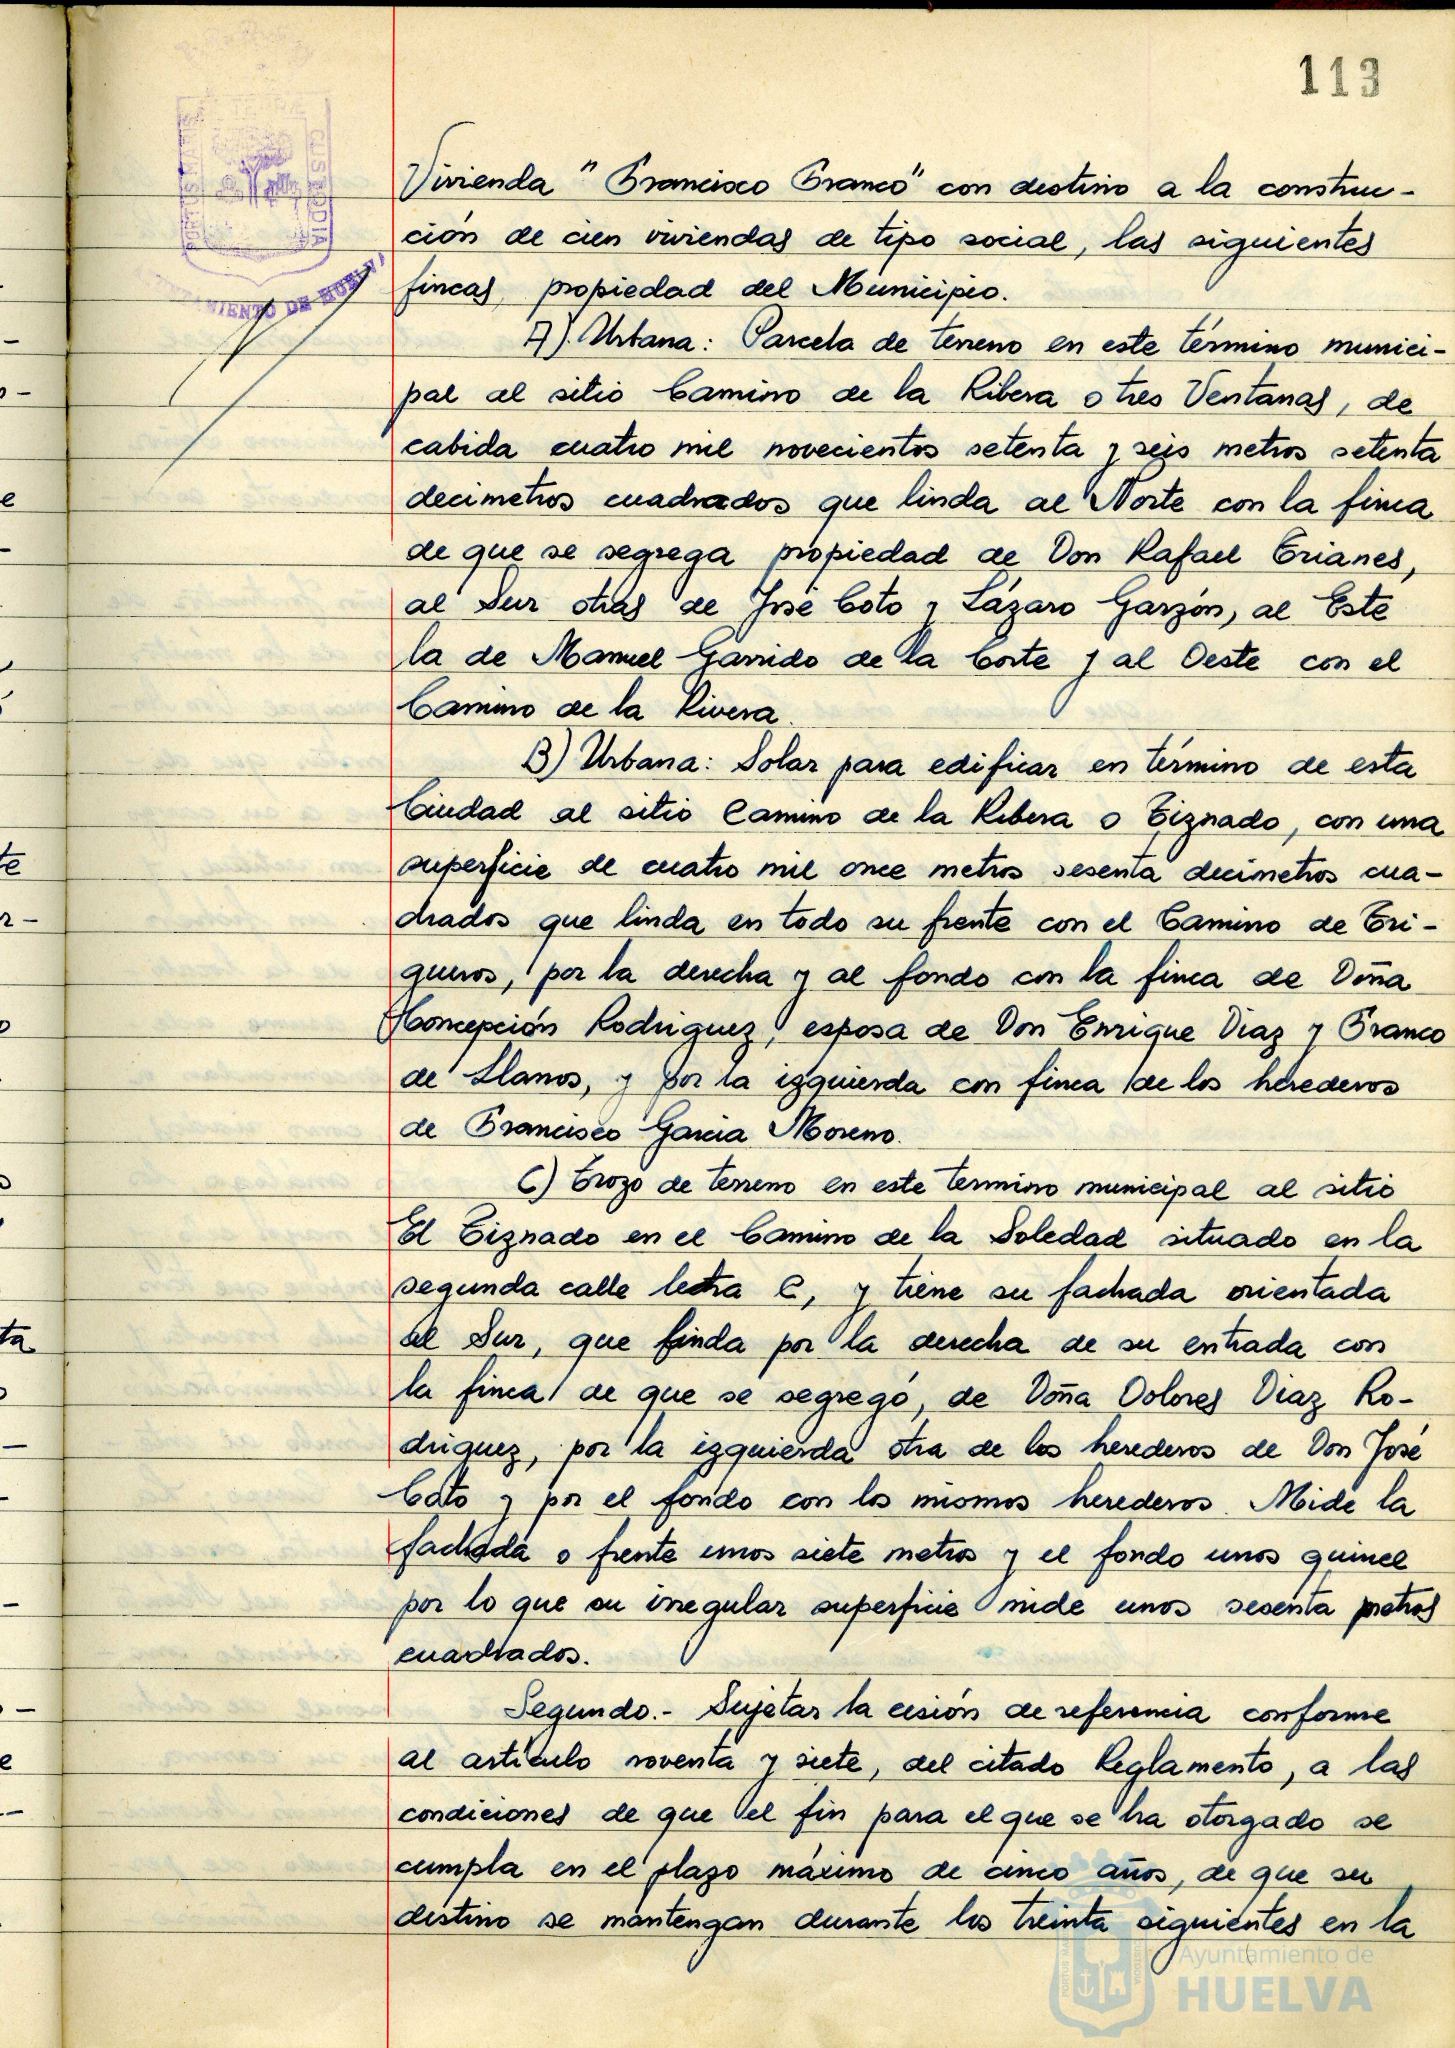 113
PORTUS MARIS
ET TERRÆ
CUSTODIA
AYUNTAMIENTO DE HUELVA
Vivienda "Francisco Franco" con destino a la construc-
ción de cien viviendas de tipo social, las siguientes
fincas, propiedad del Municipio.
A). Urbana: Parcela de terreno en este término munici-
pal al sitio Camino de la Ribera o tres Ventanas, de
cabida cuatro mil novecientos setenta y seis metros setenta
decimetros cuadrados que linda al Norte con la finca
de que se segrega propiedad de Don Rafael Trianes,
al Sur otras de José Coto y Lázaro Garzón, al Este
la de Manuel Garrido de la Corte y al Oeste con el
Camino de la Rivera.
B) Urbana: Solar para edificar en término de esta
Ciudad al sitio Camino de la Ribera o Tiznado, con una
superficie de cuatro mil once metros sesenta decimetros cua-
drados que linda en todo su frente con el Camino de Tri-
gueros, por la derecha y al fondo con la finca de Doña
Concepción Rodriguez, esposa de Don Enrique Diaz y Franco
de Llanos, y por la izquierda con finca de los herederos
de Francisco Garcia Moreno.
C) Trozo de terreno en este termino municipal al sitio
El Tiznado en el Camino de la Soledad situado en la
segunda calle letra C, y tiene su fachada orientada
al Sur, que linda por la derecha de su entrada con
la finca de que se segregó, de Doña Dolores Diaz Ro-
driguez, por la izquierda otra de los herederos de Don José
Coto y por el fondo con los mismos herederos. Mide la
fachada o frente unos siete metros y el fondo unos quince
por lo que su irregular superficie mide unos sesenta metros
cuadrados.
Segundo.- Sujetar la cesión de referencia conforme
al artículo noventa y siete, del citado Reglamento, a las
condiciones de que el fin para el que se ha otorgado se
cumpla en el plazo máximo de cinco años, de que su
destino se mantengan durante los treinta siguientes en la
Ayuntamiento de
HUELVA